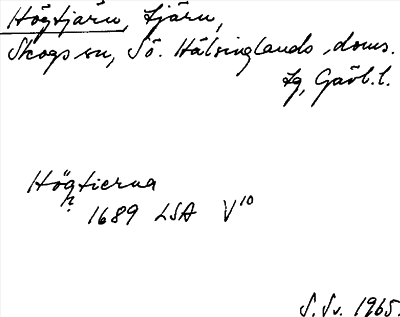 Högtjärn, tjärn,
Skogs sn, Sö. Hälsinglands doms.
tg, Gävl.l.
Högtierna
?
1689 LSA V10
S.Sv. 1965.